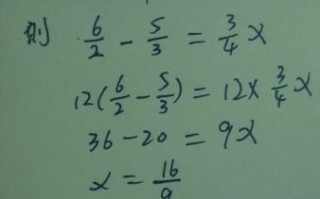 则 6/2 - 5/3 = 3/4 x
12(6/2 - 5/3) = 12 × 3/4 x
36 - 20 = 9x
x = 16/9